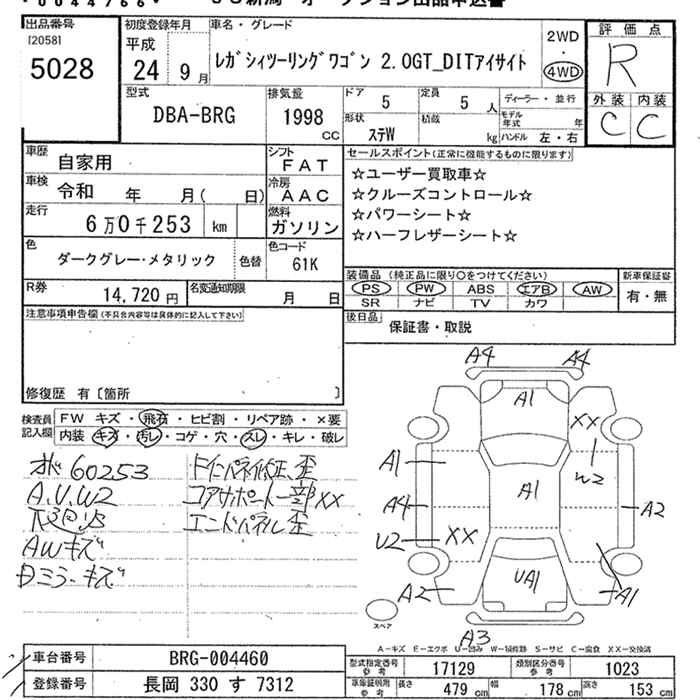 0044766
US新潟 オークション出品申込書
出品番号 初度登録年月 車名・グレード 2WD 評価点
[2058]
5028
平成 24 9月 レガシィツーリングワゴン 2.0GT_DITアイサイト ・ 4WD R
型式 排気量 ドア 5 定員 5人 ディーラー・並行 外装 内装
DBA-BRG 1998 CC 形状 ステW 積載 kg モデル年式 年 ハンドル 左・右 C C
車歴 自家用 シフト FAT セールスポイント(正常に機能するものに限ります)
☆ユーザー買取車☆
車検 令和 年 月( 日) 冷房 AAC ☆クルーズコントロール☆
☆パワーシート☆
走行 6万0千253 km 燃料 ガソリン ☆ハーフレザーシート☆
色 ダークグレー・メタリック 色替 色コード 61K
装備品(純正品に限り○をつけてください) 新車保証書
PS PW ABS エアB AW 有・無
SR ナビ TV カワ
R券 14,720円 名変通知期限 月 日
後日品 保証書・取説
注意事項申告欄(不具合内容等は具体的に記入して下さい)
修復歴 有〔箇所 〕
検査員記入欄 FW キズ・飛石・ヒビ割・リペア跡・×要
内装 キズ・汚レ・コゲ・穴・スレ・キレ・破レ
60253
A.U.W2
AWキズ
ミラーキズ
インパネ修正、歪
コアサポート一部XX
エンドパネル歪
A4 A4
A1
XX
A1 W2
A1
A4 A2
U2 XX
UA1
A2 A1
A3
スペア
A-キズ E-エクボ U-凹み W-補修跡 S-サビ C-腐食 XX-交換済
車台番号 BRG-004460 型式指定番号 参考 17129 類別区分番号 参考 1023
登録番号 長岡 330 す 7312 車庫証明用 参考 長さ 479cm 幅 178cm 高さ 153cm